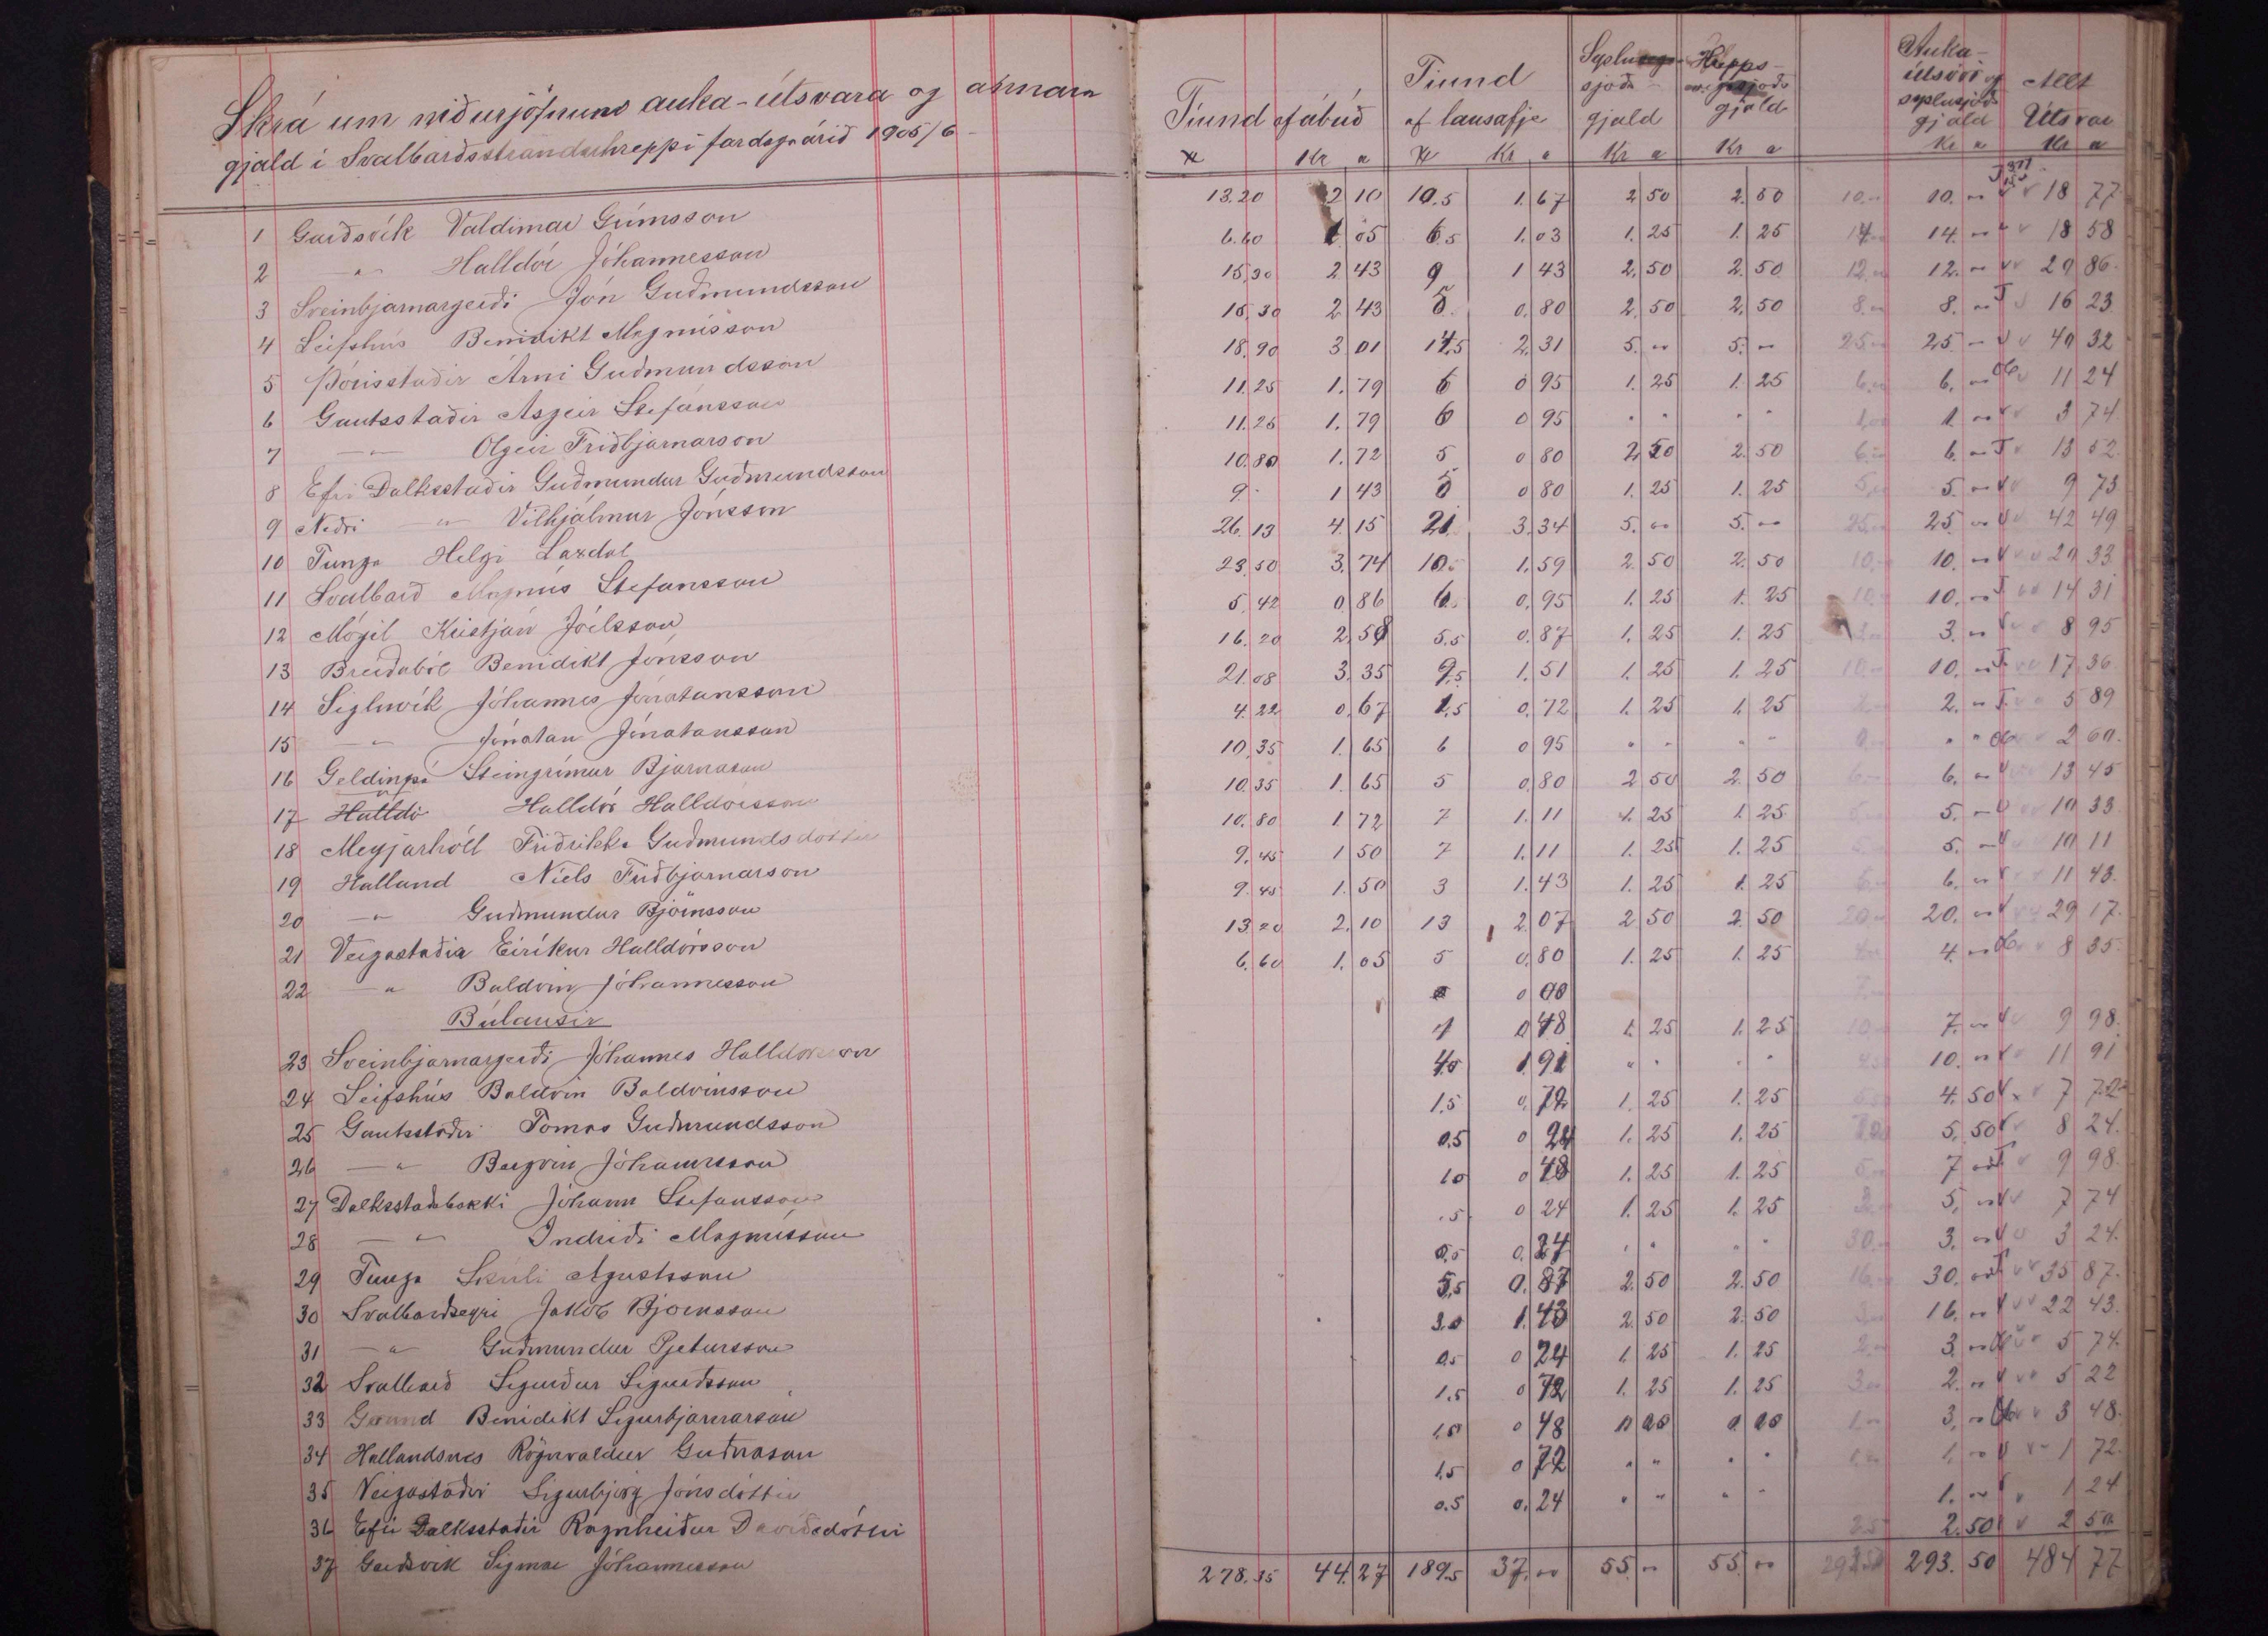 Skrá um niðurjöfnuno auka-útsvara og annara
gjald í Svalbarðsstrandarhreppi fardagaárið 1905/6
1 Garðsvík Valdimar Grímsson
2 " Halldór Jóhannesson
3 Sveinbjarnargerði Jón Guðmundsson
4 Leifshús Benidikt Magnússon
5 Þórisstaðir Árni Guðmundsson
6 Gautsstaðir Asgeir Stefánsson
7 " Olgeir Friðbjarnarson
8 Efri Dalksstaðir Guðmundur Guðmundsson
9 Neðri " Vilhjálmur Jónsson
10 Tunga Helgi Laxdal
11 Svalbarð Magnús Stefánsson
12 Mógil Kristján Jóelsson
13 Breiðaból Benidikt Jónsson
14 Sigluvík Jóhannes Jónatansson
15 " Jónatan Jónatansson
16 Geldingsá Steingrímur Bjarnason
17 Halldó Halldór Halldórsson
18 Meyjarhóll Friðrikka Guðmundsdóttir
19 Halland Níels Friðbjarnarson
20 " Guðmundur Björnsson
21 Veigastaðir Eiríkur Halldórsson
22 " Baldvin Jóhannesson
Búlausir
23 Sveinbjarnargerði Jóhannes Halldórsson
24 Leifshús Baldvin Baldvinsson
25 Gautsstaðir Tomas Guðmundsson
26 " Bergvin Jóhannsson
27 Dalksstaðabakki Jóhann Stefansson
28 " Indriði Magnússon
29 Tunga Skúli Agustsson
30 Svalbarðseyri Jakob Bjornsson
31 " Guðmundur Pjetursson
32 Svalbarð Sigurður Sigurðsson
33 Grund Benidikt Sigurbjarnarson
34 Hallandsnes Rögnvaldur Guðnason
35 Veigastaðir Sigurbjörg Jónsdóttir
36 Efri Dalksstaðir Ragnheiður Davíðsdóttir
37 Garðsvík Sigmar Jóhannesson
Tíund af ábúð Tiund af lausafje Syslu sjóðs gjald Hrepps sjóðs gjald Auka-útsvör og syslusjóðs gjald Allt Útsvar
Kr a Kr a Kr a Kr a Kr a Kr a
13.20 2 10 10.5 1.67 2 50 2.50 10. 10. " 18 77
6.60 1 05 6.5 1.03 1.25 1.25 14 14. " 18 58
15,30 2 43 9 1 43 2.50 2.50 12. 12. " 20 86
15,30 2 43 5 0.80 2.50 2.50 8. 8. " 16 23
18.90 3 01 14.5 2.31 5. " 5. " 25 25 " 40 32
11.25 1.79 6 0 95 1.25 1.25 6. 6. " 11 24
11.25 1.79 6 0 95 " " " " 1,00 1. " 3 74
10.80 1.72 5 0 80 2.50 2.50 6. 6. " 13 52
9 - 1 43 5 0 80 1.25 1.25 5. 5. " 9 73
26.13 4.15 21 3.34 5. " 5. " 25. 25 " 42 49
23.50 3.74 10. 1.59 2.50 2.50 10. 10. " 20 33
5,42 0,86 6 0.95 1.25 1.25 10. 10. " 14 31
16.20 2.58 5.5 0.87 1.25 1.25 3. " 8 95
21.08 3.35 9,5 1.51 1.25 1.25 10 10. " 17.36
4.22 0.67 0.72 1.25 1.25 2 2. " 5 89
10.35 1.65 6 0 95 " " " " " " 2 60
10.35 1.65 5 0,80 2 50 2.50 6. 6. " 13 45
10.80 1.72 7 1.11 1.25 1.25 5. 5. " 10 33
9.45 1 50 7 1.11 1.25 1.25 5. " 10 11
9.45 1.50 3 1.43 1.25 1.25 6. 6. " 11 43
13.20 2.10 13 2.07 2 50 2.50 20 20. " 29 17
6.60 1.05 5 0.80 1.25 1.25 4. 4. " 8 35
0 00 7.
0 48 1.25 1.25 10 7. " 9 98
1 91 " " " " 4.5 10. " 11 91
1.5 0.72 1.25 1.25 4.50 7 72
0.5 0 24 1.25 1.25 5.50 8 24
1.0 0 48 1.25 1.25 5. 7 " 9 98
.5 0 24 1.25 1.25 3. 5, " 7 74
0,5 0.24 " " " " 30. 3. " 3 24
5,5 0.87 2.50 2.50 16. 30. " 35 87
3.0 1.43 2.50 2.50 3 16. " 22 43
0.5 0 24 1.25 1.25 2. 3. " 5 74
1.5 0 72 1.25 1.25 3. 2. " 5 22
1.0 0 48 1. 3, " 3 48
1.5 0 72 " " " " 1. 1. " 1 72
0.5 0.24 " " " " 1. " 1 24
2.5 2.50 2 50
278.35 44.27 189.5 37. " 55. " 55. " 293.50 293.50 484 77